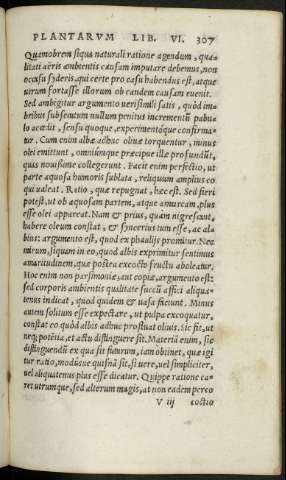 PLANTARVM LIB. VI. 307
Quamobrem siqua naturali ratione agendum, qua-
litati aëris ambientis causam imputare debemus, non
occasu syderis, qui certe pro casu habendus est, atque
utrum fortasse illorum ob eandem causam euenit.
Sed ambigitur argumento uerisimili satis, quòd im-
bribus subsecutum nullum penitus incrementũ pabu-
lo accedit, sensu quoque, experimentóque confirma-
tur. Cum enim albæ adhuc oliuæ torquentur, minus
olei emittunt, omniúmque præcipue illæ profundũt,
quis nouissime collegerunt. Facit enim perfectio, ut
parte aquosa humoris sublata, reliquum amplius eo
qui ualeat. Ratio, quæ repugnat, hæc est. Sed fieri
potest, ut ob aquosam partem, atque amurcam, plus
esse olei appareat. Nam & prius, quàm nigrescunt,
habere oleum constat, & syncerius tum esse, ac al-
bius: argumento est, quod ex phaulijs promitur. Nec
mirum, siquam in eo, quod albis exprimitur sentimus
amaritudinem, quæ postea excocto fructu aboleatur.
Hoc enim non parsimoniæ, aut copiæ, argumento est:
sed corporis ambientis qualitate succũ affici aliqua-
tenus indicat, quod quidem & uasa faciunt. Minus
autem solitum esse expectare, ut pulpa excoquatur,
constat eo quòd albis adhuc prostuat oliuis. Sic fit, ut
neq; potẽtia, et actu distinguere sit. Materiã enim, sic
distinguendũ ex qua sit futurum, iam obinet, quæ igi
tur ratio, modúsue quisnã sit, si uere, uel simpliciter,
uel aliquatenus plus esse dicatur. Quippe ratione ca-
ret utrumque, sed alterum magis, at non eadem pereo
V iij coctio